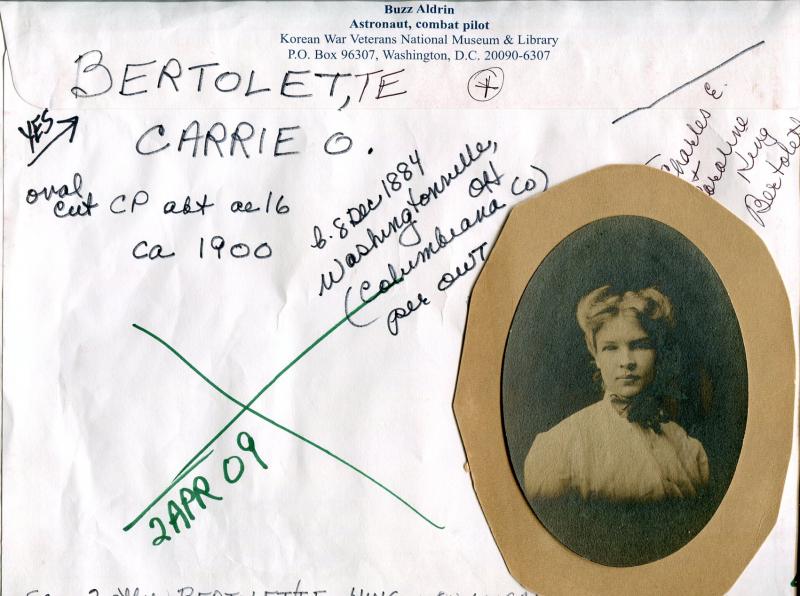 Buzz Aldrin
Astronaut, combat pilot
Korean War Veterans National Museum & Library
P.O. Box 96307, Washington, D.C. 20090-6307
BERTOLET,TE
YES
CARRIE O.
oval
cut CP abt ae 16
ca 1900
b. 8 Dec 1884
Washingtonville,
OH
(Columbiana Co)
per OWT
Charles E.
Caroline
King
Bertolet
2 APR 09
BERTOLETTE